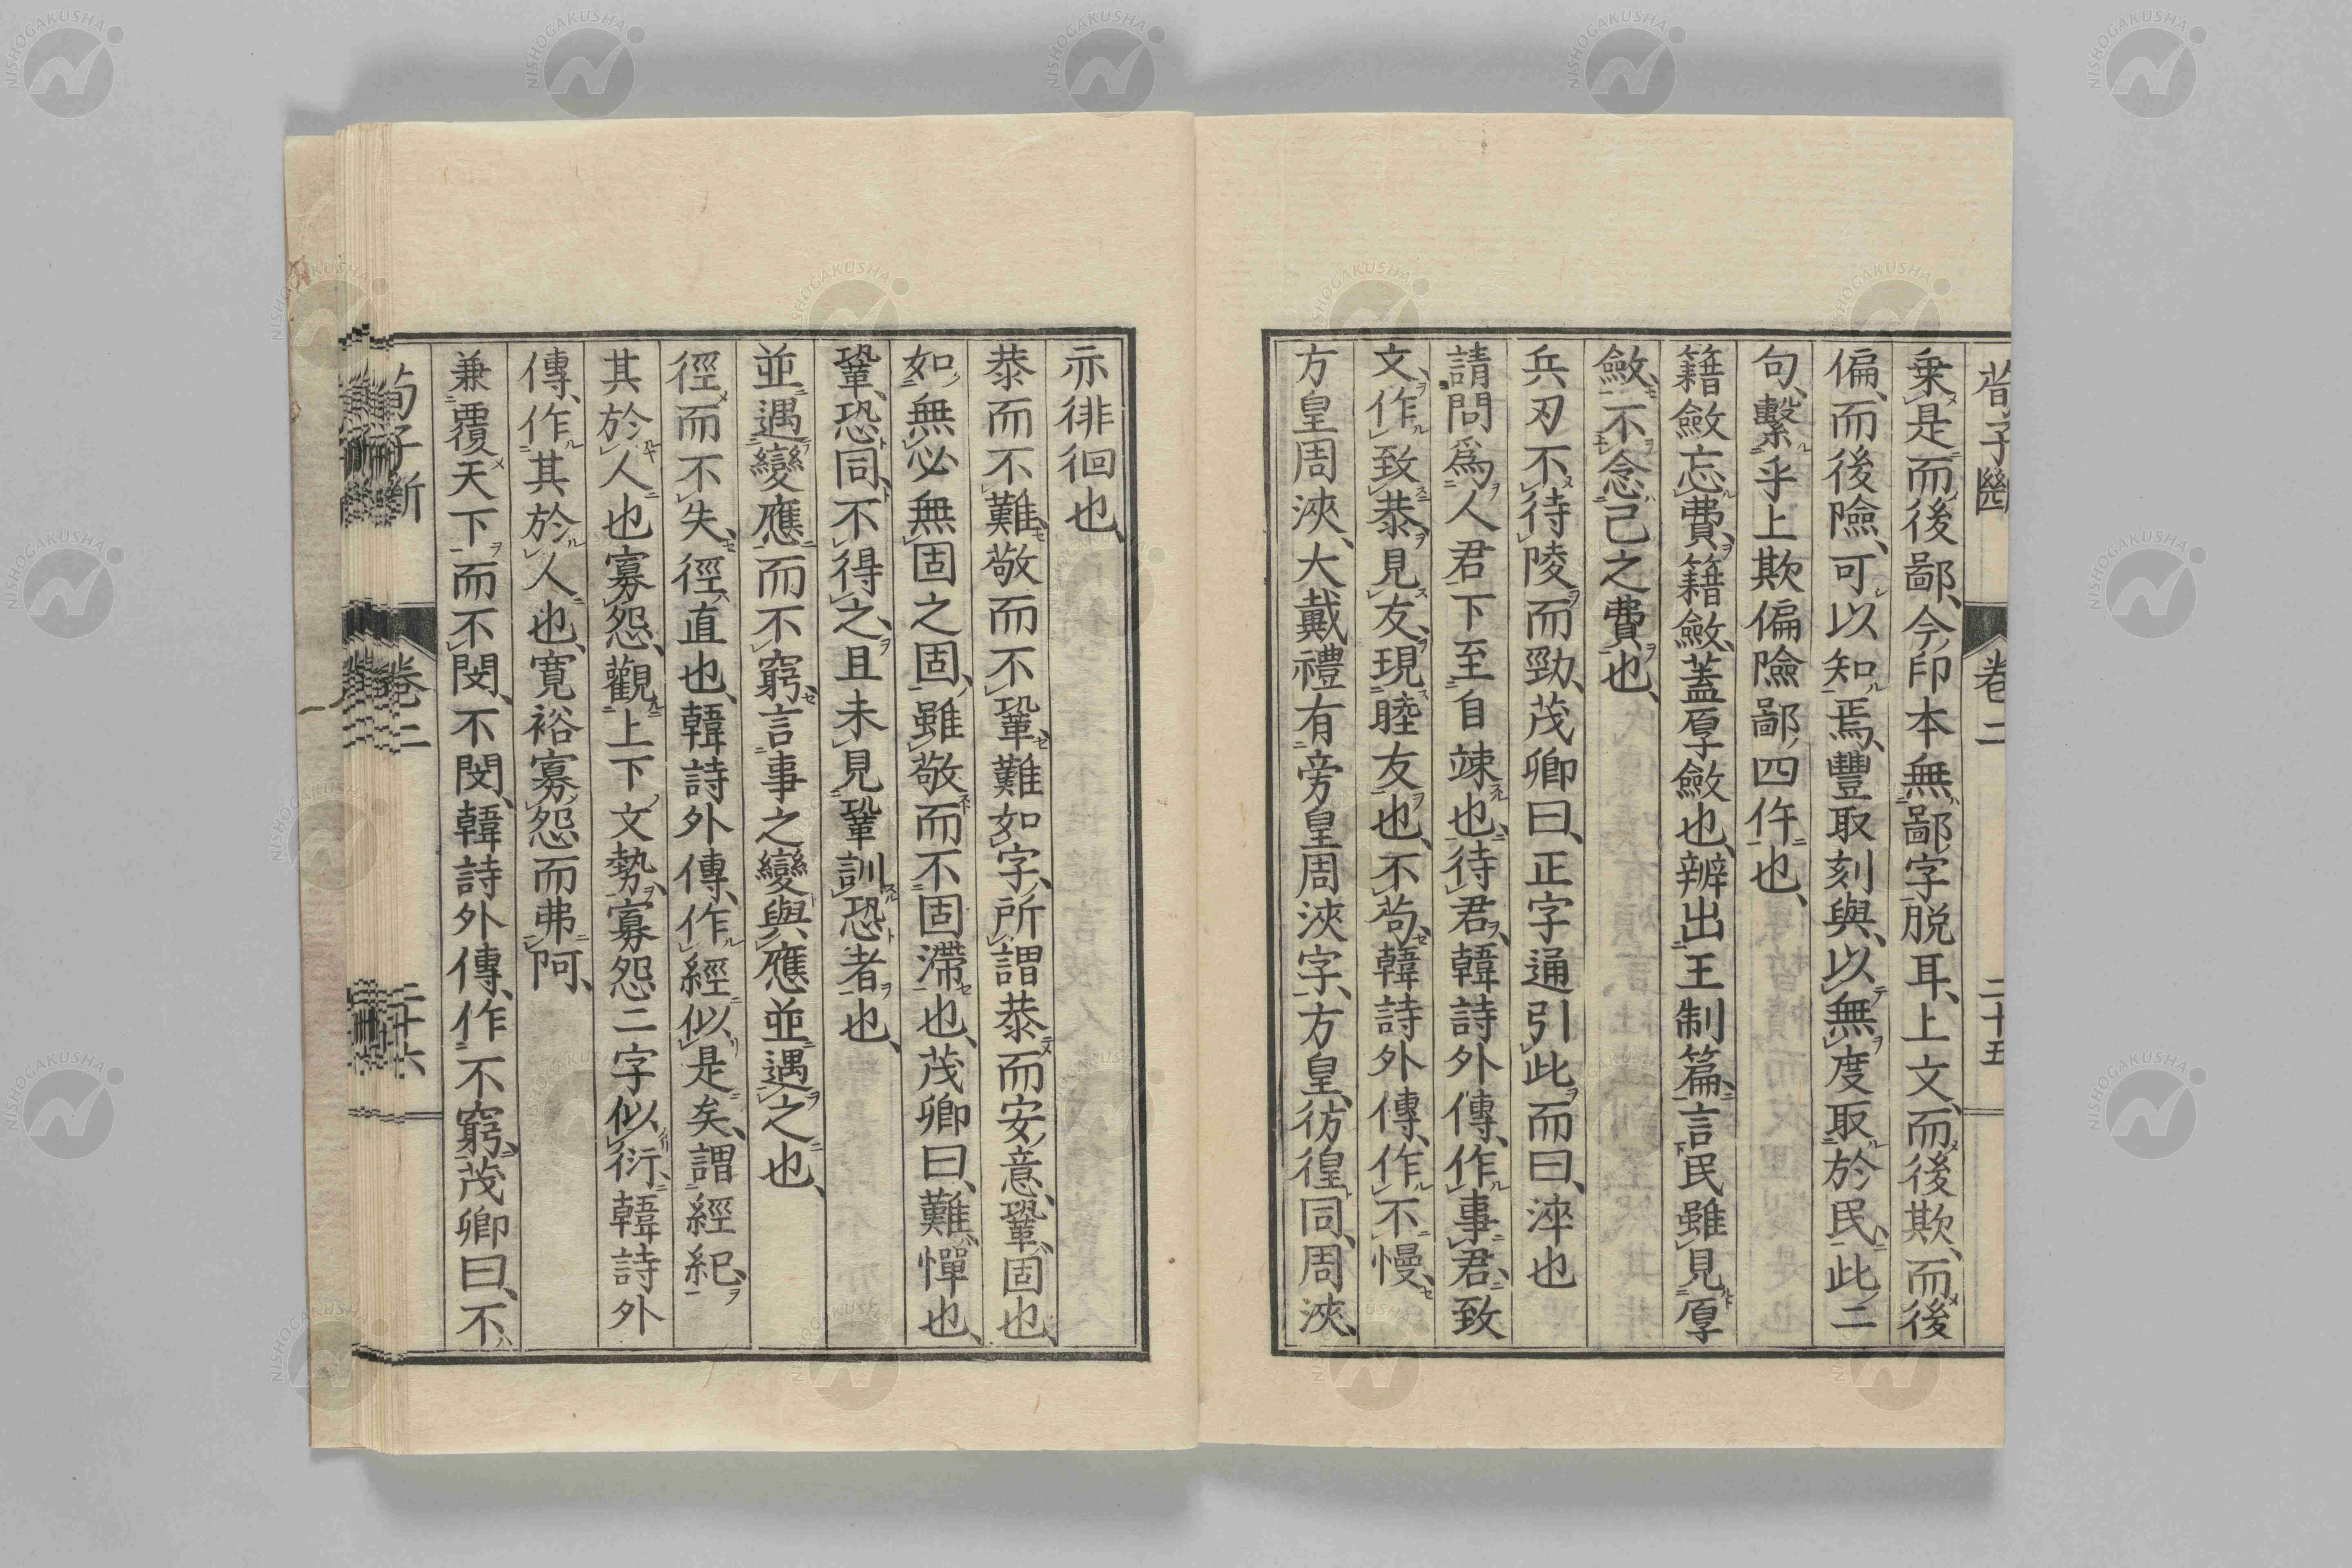 荀子斷
卷二
二十五
乗是而後鄙、今印本無鄙字脱耳、上文而後欺、而後
偏、而後險、可以知焉、豐取刻與、以無度取於民、此二
句、繫乎上欺偏險鄙、四件也、
籍斂忘費、籍斂、蓋厚斂也、辨出王制篇、言民雖見厚
斂、不念己之費也、
兵刃不待陵而勁、茂卿曰、正字通引此而曰、淬也
請問爲人君下至自竦也、待君、韓詩外傳、作事君、致
文、作致恭、見友、現睦友也、不苟、韓詩外傳、作不慢、
方皇周浹、大戴禮有旁皇周浹字、方皇、彷徨同、周浹、
亦徘徊也、
恭而不難敬而不鞏難如字、所謂恭而安意、鞏、固也、
如無必無固之固、雖敬而不固滯也、茂卿曰、難、憚也、
鞏、恐同、不得之、且未見鞏訓恐者也、
並遇變應而不窮、言事之變與應並遇之也、
徑而不失、徑直也、韓詩外傳、作經似是矣、謂經紀、
其於人也寡怨、觀上下文勢、寡怨二字似衍、韓詩外
傳、作其於人也、寬裕寡怨而弗阿、
兼覆天下而不閔、不閔、韓詩外傳、作不窮、茂卿曰、不
荀子斷
卷二
二十六
NISHOGAKUSHA